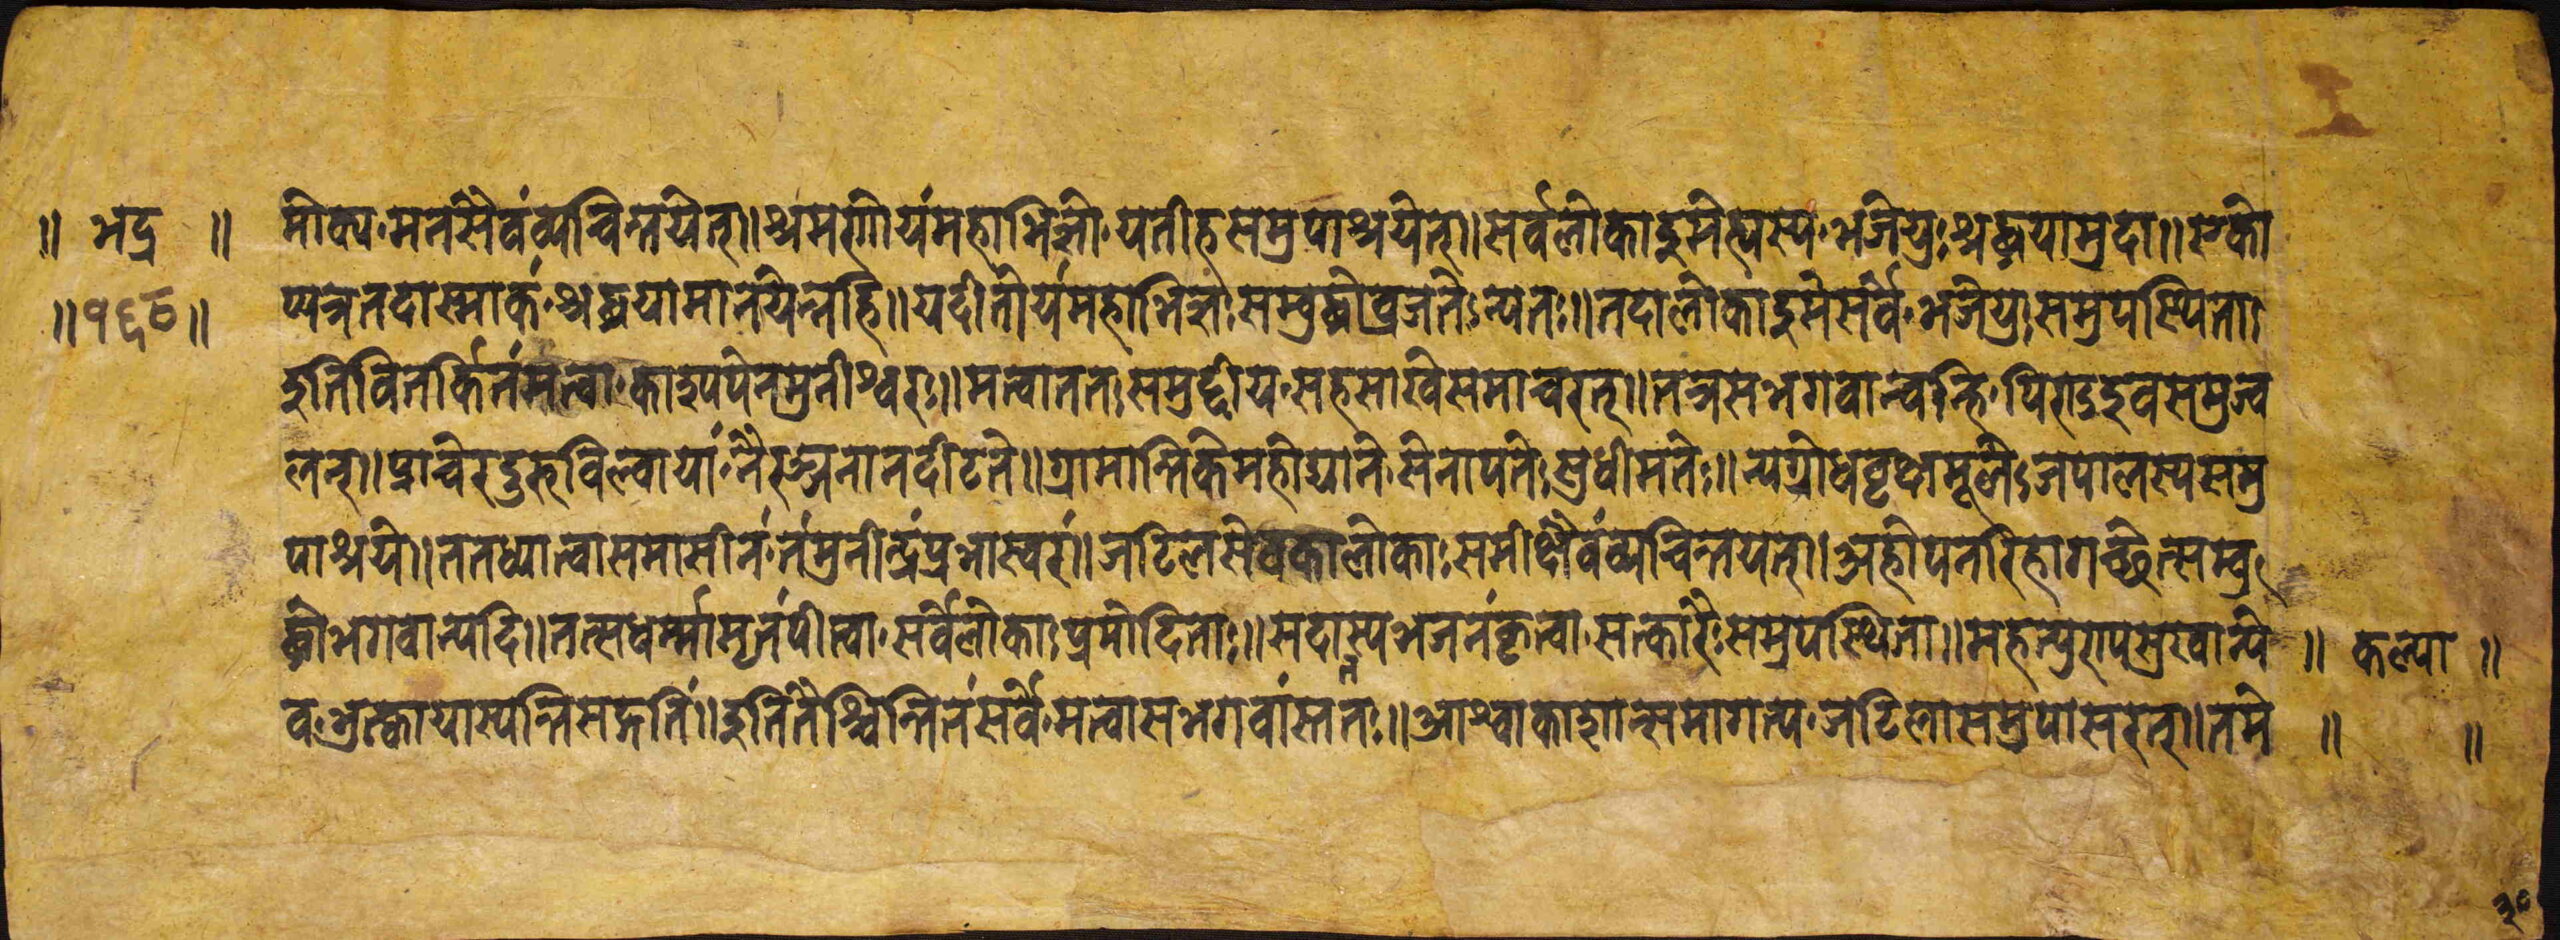 ॥ भद्र ॥ मोक्य मनसैवं व्यचिन्तयेत्॥ श्रमणोयं महाभिज्ञो यतीह समुपाश्रयेत्॥ सर्वलोका इमेत्यस्य भजेयुः श्रद्धया मुदा॥ एको
॥१६८॥ प्यत्र तदास्माकं श्रद्धया मानयेन्नहि॥ यदीतोयं महाभिज्ञः सम्बुद्धो व्रजतेः न्यतः॥ तदा लोका इमे सर्वे भजेयुः समुपस्थिताः
इति वितर्कितं मत्वा काश्यपेन मुनीश्वरः॥ मत्वा ततः समुड्डीय सहसा खे समाचरत्॥ तत्र स भगवान्वह्नि पिण्ड इव समुज्व
लन्॥ प्राचरदुरुविल्वायां नैरञ्जनानदीतटे॥ ग्रामान्तिके महोद्याने सेनापतेः सुधीमतेः॥ न्यग्रोधवृक्षमूले जपालस्य समु
पाश्रये॥ तत ध्यात्वा समासीनं तं मुनीन्द्रं प्रभास्वरं॥ जटिलसेवका लोकाः समीक्ष्यैवं व्यचिन्तयन्॥ अहो पुनरिहागच्छेत्सम्बु
द्धो भगवान्यदि॥ तत्सधर्म्मामृतं पीत्वा सर्वलोकाः प्रमोदिताः॥ सदास्य भजनं कृत्वा सत्कारैः समुपस्थिता॥ महत्पुण्यसुखान्ये ॥ कल्पा ॥
व भुत्क्वा यास्यन्ति सद्गतिं॥ इति तैश्चिन्तितं सर्वं मत्वा स भगवांस्ततः॥ आश्वाकाशात्समागत्य जटिलासमुपासरत्॥ तमे ॥ ॥